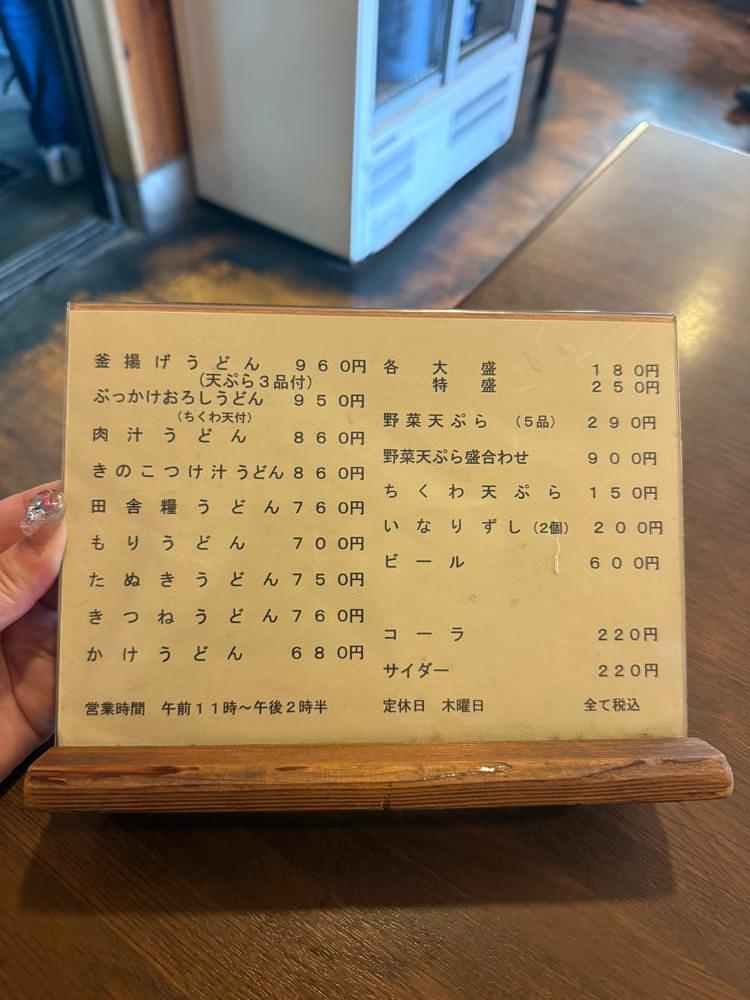 釜揚げうどん ９６０円
（天ぷら３品付）
ぶっかけおろしうどん ９５０円
（ちくわ天付）
肉汁うどん ８６０円
きのこつけ汁うどん ８６０円
田舎糧うどん ７６０円
もりうどん ７００円
たぬきうどん ７５０円
きつねうどん ７６０円
かけうどん ６８０円
営業時間 午前１１時～午後２時半
各 大盛 １８０円
特盛 ２５０円
野菜天ぷら （５品） ２９０円
野菜天ぷら盛合わせ ９００円
ちくわ天ぷら １５０円
いなりずし（2個） ２００円
ビール ６００円
コーラ ２２０円
サイダー ２２０円
定休日 木曜日 全て税込